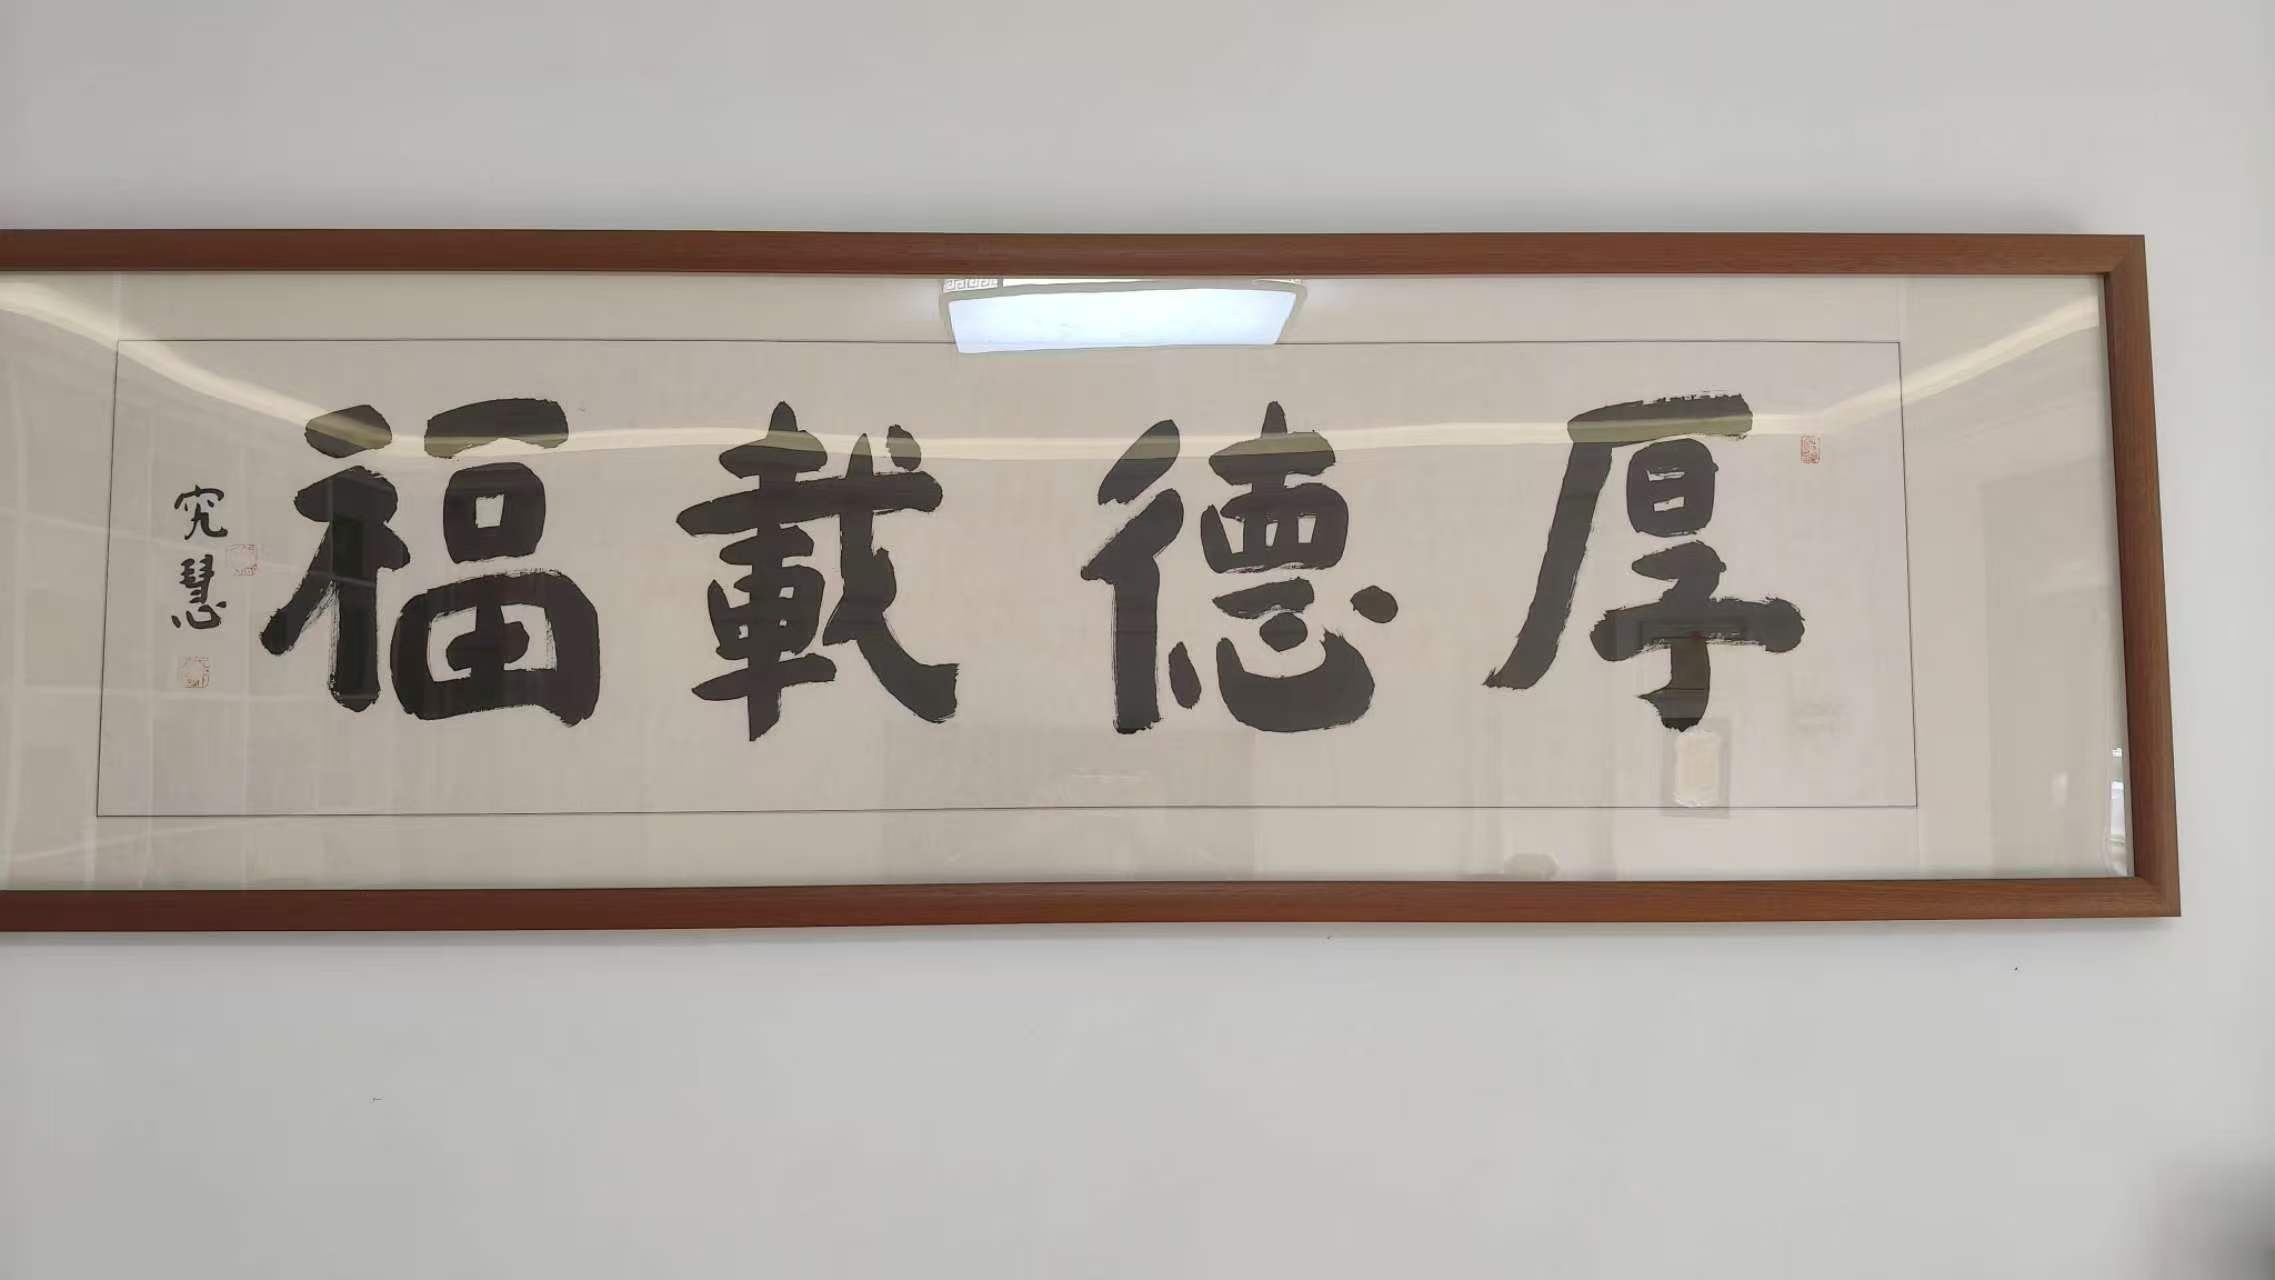 厚德載福
究慧